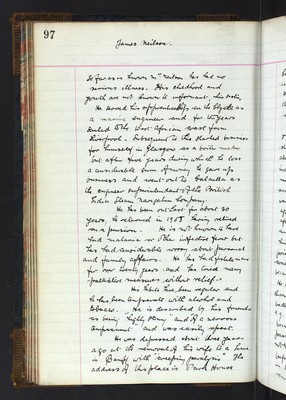 97
James Neilson.
So far as is known Mr Neilson has had no
serious illness. His childhood and
youth are not known to informant, his sister.
He served his apprenticeship on the Clyde as
a marine engineer and for years
sailed to the West African coast from
Liverpool. Subsequent to this started business
for himself in Glasgow as a boiler maker
but after five years during which he lost
a considerable sum of money he gave up
business and went out to Calcutta as
the engineer superintendent of the British
India Steam Navigation Company.
He has been out East for about 20
years, he returned in 1908 having retired
on a pension. He is not known to have
had malaria or other infective fever but
has had considerable worry about personal
and family affairs. He has had
for over twenty years and has tried many
palliative measures without relief.
His habits have been regular and
he has been temperate with alcohol and
tobacco. He is described by his friends
as being "highly strung" and of a nervous
temperament and was easily upset.
He was depressed about three years
ago at the removal of his wife to a home
in Banff with "creeping paralysis" The
address of this place is Park House